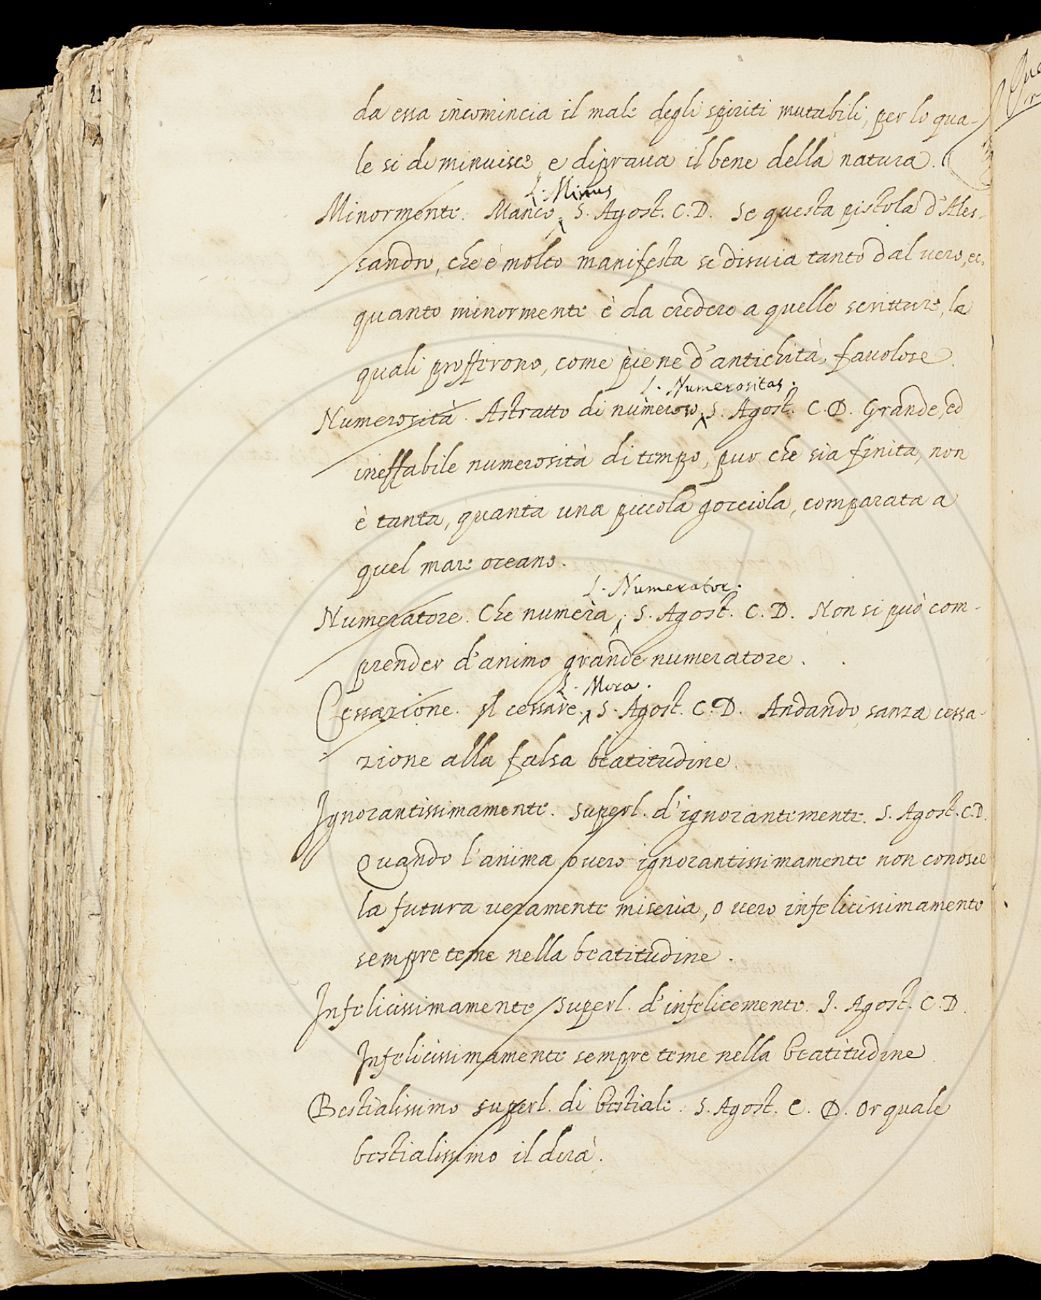 da essa incomincia il male degli spiriti mutabili, per lo qua-
le si di minuisce e diprava il bene della natura.
L. Minus
Minormente. Manco, S. Agost. C. D. Se questa pistola d'Ales-
sandro, che è molto manifesta se disvia tanto dal vero, ec.
quanto minormente è da credere a quelle scritture, la
quali profferono, come piene d'antichità, favolose.
L. Numerositas.
Numerosità. Astratto di numeroso, S. Agost. C. D. Grande, ed
ineffabile numerosità di tempo, pur che sia finita, non
è tanta, quanta una piccola gocciola, comparata a
quel mare oceano.
L. Numerator.
Numeratore. Che numera, S. Agost. C. D. Non si può com-
prender d'animo grande numeratore.
L. Mora.
Cessazione. Il cessare. S. Agost. C. D. Andando, sanza cessa-
zione alla falsa beatitudine.
Ignorantissimamente. Superl. d'ignorantemente. S. Agost. C.D.
Quando l'anima overo ignorantissimamente non conosce
la futura veramente miseria, o vero infelicissimamente
sempre teme nella beatitudine.
Infelicissimamente Superl. d'infelicemente. S. Agost. C. D.
Infelicissimamente sempre teme nella beatitudine
Bestialissimo superl. di bestiale. S. Agost. C. D. Or quale
bestialissimo il dirà.